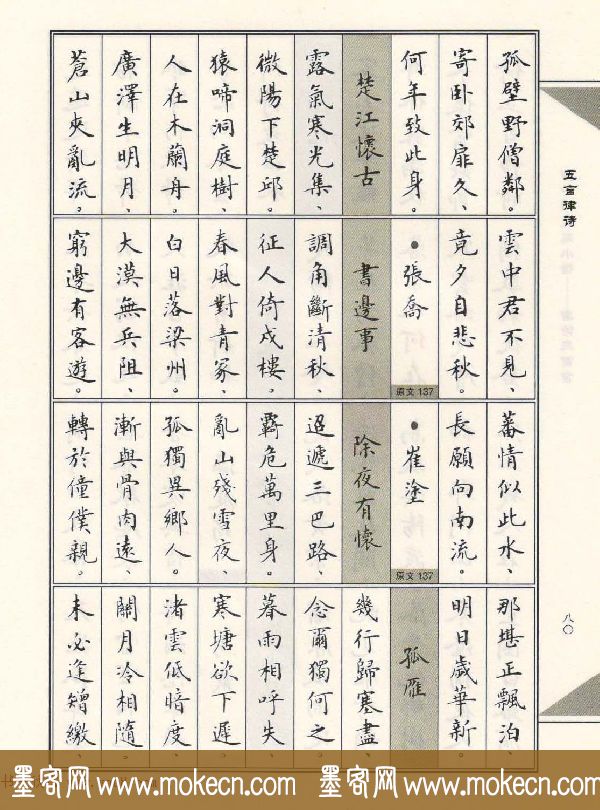 五言律诗
孤壁野僧鄰。
寄卧郊扉久、
何年致此身。
楚江懷古
露氣寒光集、
微陽下楚邱。
猿啼洞庭樹、
人在木蘭舟。
廣澤生明月、
蒼山夾亂流。
雲中君不見、
竟夕自悲秋。
•張喬
原文 137
書邊事
調角斷清秋、
征人倚戍樓。
春風對青冢、
白日落梁州。
大漠無兵阻、
窮邊有客遊。
蕃情似此水、
長願向南流。
•崔塗
原文 137
除夜有懷
迢遞三巴路、
羈危萬里身。
亂山殘雪夜、
孤獨異鄉人。
漸與骨肉遠、
轉於僮僕親。
那堪正飄泊、
明日歲華新。
孤雁
幾行歸塞盡、
念爾獨何之。
暮雨相呼失、
寒塘欲下遲。
渚雲低暗度、
關月冷相隨。
未必逢矰繳、
八〇
墨客网 www.mokecn.com 墨客网 www.mokecn.com